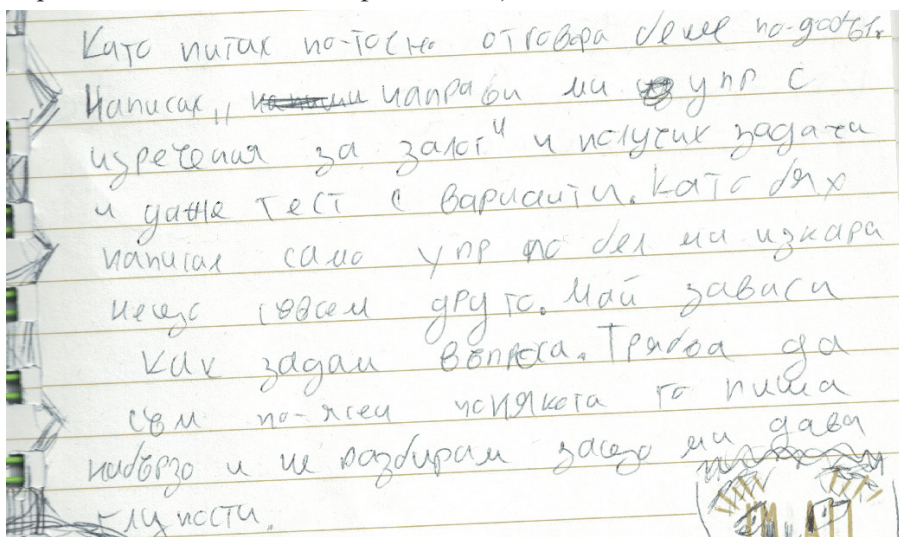 Като питах по-точно отговора беше по-добър.
Написах „ направи ми упр с
изречения за залог“ и получих задачи
и даже тест с варианти. Като бях
написал само упр по бел ми изкара
нещо съвсем друго. Май зависи
как задам въпроса. Трябва да
съм по-ясен понякога то пиша
набързо и не разбирам защо ми дава
глупости.